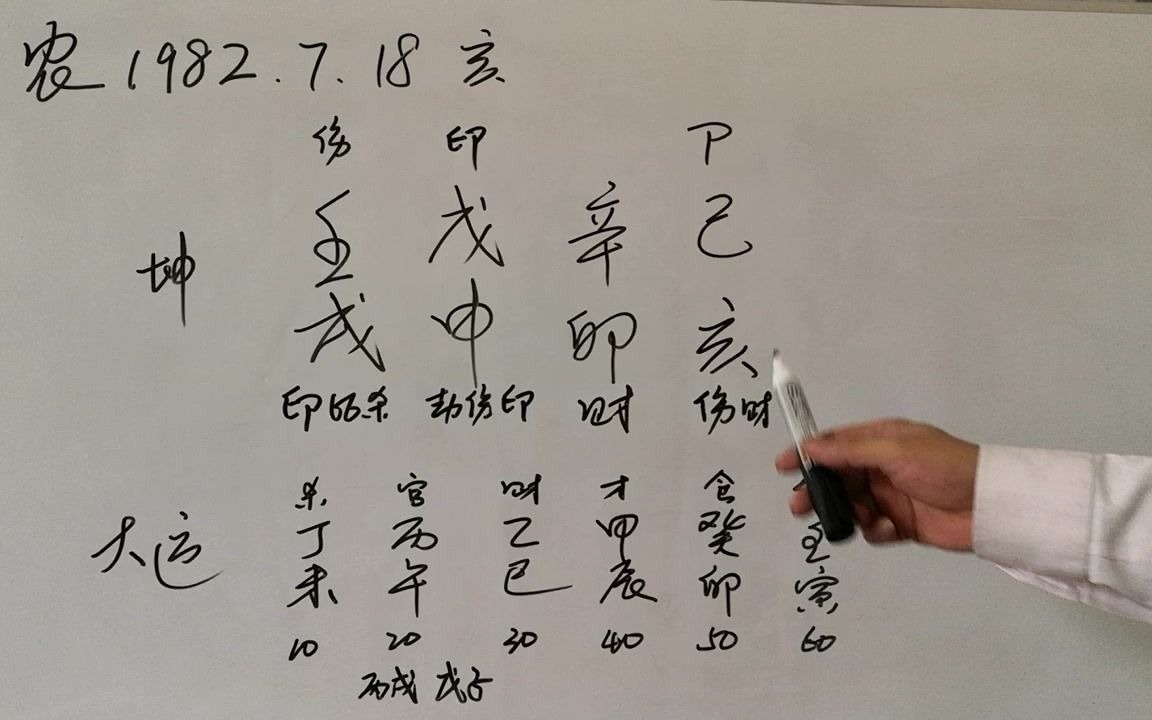 农1982.7.18 亥
伤 印 P
壬 戊 辛 己
坤
戌 申 卯 亥
印比杀 劫伤印 财 伤财
杀 官 财 才 食
丁 丙 乙 甲 癸 壬
大运
未 午 巳 辰 卯 寅
10 20 30 40 50 60
丙戌 戊子